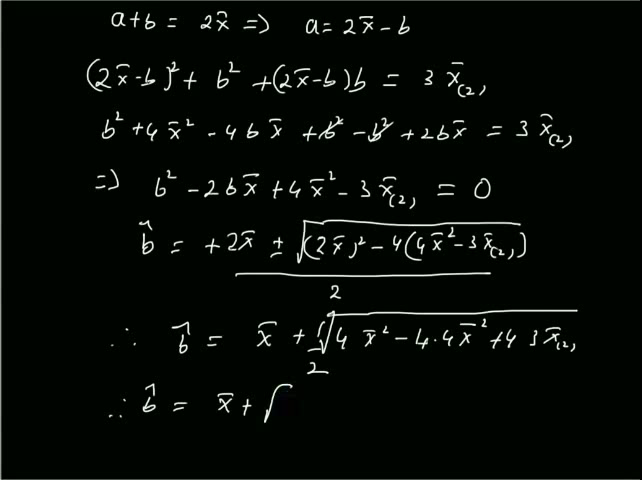 a+b = 2x̄ => a = 2x̄-b
(2x̄-b)² + b² + (2x̄-b)b = 3 x̄₍₂₎
b² + 4x̄² - 4bx̄ + b² - b² + 2bx̄ = 3 x̄₍₂₎
=> b² - 2bx̄ + 4x̄² - 3x̄₍₂₎ = 0
b̂ = +2x̄ ± √((2x̄)² - 4(4x̄² - 3x̄₍₂₎))
2
∴ b̂ = x̄ + √(4 x̄² - 4.4x̄² + 4 3 x̄₍₂₎
2
∴ b̂ = x̄ + √